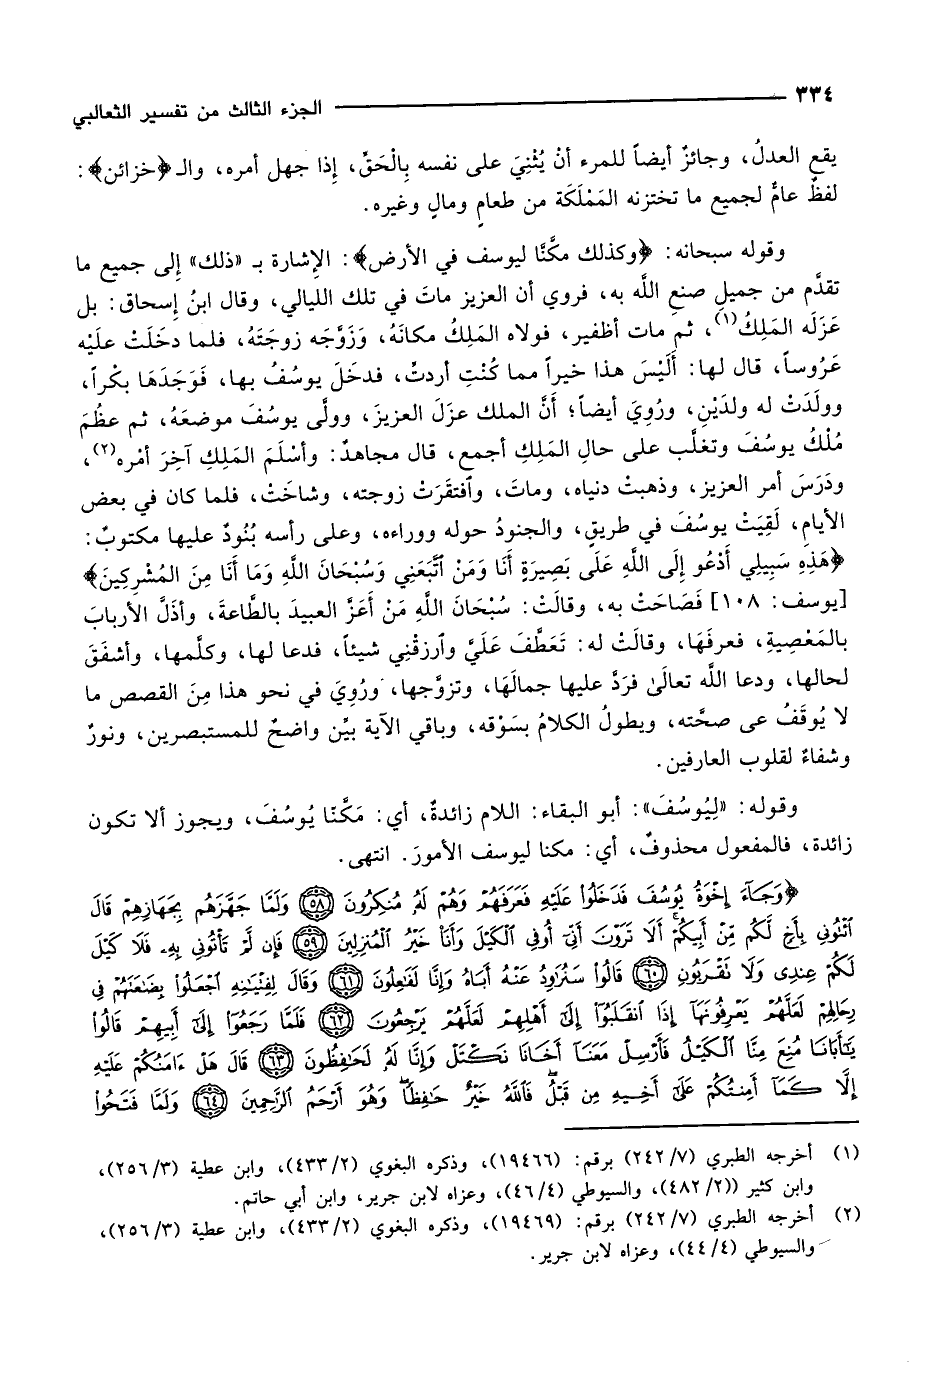 ٣٣٤ ــــــــــــــــــــ الجزء الثالث من تفسير الثعالبي
يقع العدلُ، وجائزٌ أيضاً للمرء أنْ يُثْنِيَ على نفسه بِالْحَقِّ، إِذا جهل أمره، والـ﴿خزائن﴾:
لفظٌ عامٌّ لجميع ما تختزنه المَمْلَكَة من طعامٍ ومالٍ وغيره.
وقوله سبحانه: ﴿وكذلك مكَّنَّا ليوسف في الأرض﴾: الإِشارة بـ «ذلك» إِلى جميع ما
تقدَّم من جميلِ صنعِ اللَّه به، فروي أن العزيز ماتَ في تلك الليالي، وقال ابنُ إسحاق: بل
عَزَلَه المَلِكُ(١)، ثم مات أظفير، فولاه المَلِكُ مكانَهُ، وَزَوَّجَه زوجتَهُ، فلما دخَلَتْ علَيْه
عَرُوساً، قال لها: أَلَيْسَ هذا خيراً مما كُنْتِ أردتِّ، فدخَلَ يوسُفُ بها، فَوَجَدَهَا بكْراً،
وولَدَتْ له ولدَيْنِ، ورُوِيَ أيضاً؛ أنَّ الملك عزَلَ العزيزَ، وولَّى يوسُفَ موضعَهُ، ثم عظُمَ
مُلْكُ يوسُفَ وتغلَّب على حالِ المَلِكِ أجمع، قال مجاهدٌ: وأسْلَمَ المَلِكِ آخِرَ أمْره(٢)،
ودَرَسَ أمر العزيز، وذهبتْ دنياه، وماتَ، وٱفتقَرَتْ زوجته، وشاخَتْ، فلما كان في بعض
الأيام، لَقِيَتْ يوسُفَ في طريقٍ، والجنودُ حوله ووراءه، وعلى رأسه بُنُودٌ عليها مكتوبٌ:
﴿هَذِهِ سَبِيلِي أَدْعُو إِلَى اللَّهِ عَلَى بَصِيرَةٍ أَنَا وَمَنْ ٱتَّبَعَنِي وَسُبْحَانَ اللَّهِ وَمَا أَنَا مِنَ المُشْرِكِينَ﴾
[يوسف: ١٠٨] فَصَاحَتْ به، وقالَتْ: سُبْحَانَ اللَّهِ مَنْ أَعَزَّ العبيدَ بالطَّاعةَ، وأذَلَّ الأربابَ
بالمَعْصِيةِ، فعرفَهَا، وقالَتْ له: تَعَطَّفَ عَلَيَّ وٱرزقْنِي شيئاً، فدعا لها، وكلَّمها، وأشفَقَ
لحالها، ودعا اللَّه تعالَىٰ فرَدَّ عليها جمالَهَا، وتزوَّجها، ورُوِيَ في نحو هذا مِنَ القصص ما
لا يُوقَفُ عى صحَّته، ويطولُ الكلامُ بسَوْقه، وباقي الآية بيِّن واضحٌ للمستبصرين، ونورٌ
وشفاءٌ لقلوب العارفين.
وقوله: «لِيُوسُفَ»: أبو البقاء: اللام زائدةٌ، أي: مَكَّنَّا يُوسُفَ، ويجوز ألا تكون
زائدة، فالمفعول محذوفٌ، أي: مكنا ليوسف الأمورَ. انتهى.
﴿وَجَآءَ إِخْوَةُ يُوسُفَ فَدَخَلُواْ عَلَيْهِ فَعَرَفَهُمْ وَهُمْ لَهُ مُنكِرُونَ ۝٥٨ وَلَمَّا جَهَّزَهُم بِجَهَازِهِمْ قَالَ
ٱئْتُونِي بِأَخٍ لَّكُم مِّنْ أَبِيكُمْ أَلَا تَرَوْنَ أَنِّي أُوفِي ٱلْكَيْلَ وَأَنَا۠ خَيْرُ ٱلْمُنزِلِينَ ۝٥٩ فَإِن لَّمْ تَأْتُونِي بِهِۦ فَلَا كَيْلَ
لَكُمْ عِندِي وَلَا تَقْرَبُونِ ۝٦٠ قَالُواْ سَنُرَاوِدُ عَنْهُ أَبَاهُ وَإِنَّا لَفَاعِلُونَ ۝٦١ وَقَالَ لِفِتْيَٰنِهِ ٱجْعَلُواْ بِضَٰعَتَهُمْ فِي
رِحَالِهِمْ لَعَلَّهُمْ يَعْرِفُونَهَآ إِذَا ٱنقَلَبُوٓاْ إِلَىٰٓ أَهْلِهِمْ لَعَلَّهُمْ يَرْجِعُونَ ۝٦٢ فَلَمَّا رَجَعُوٓاْ إِلَىٰٓ أَبِيهِمْ قَالُواْ
يَٰٓأَبَانَا مُنِعَ مِنَّا ٱلْكَيْلُ فَأَرْسِلْ مَعَنَآ أَخَانَا نَكْتَلْ وَإِنَّا لَهُ لَحَٰفِظُونَ ۝٦٣ قَالَ هَلْ ءَامَنُكُمْ عَلَيْهِ
إِلَّا كَمَآ أَمِنتُكُمْ عَلَىٰٓ أَخِيهِ مِن قَبْلُ فَٱللَّهُ خَيْرٌ حَٰفِظًا وَهُوَ أَرْحَمُ ٱلرَّٰحِمِينَ ۝٦٤ وَلَمَّا فَتَحُواْ
(١) أخرجه الطبري (٧/ ٢٤٢) برقم: (١٩٤٦٦)، وذكره البغوي (٢/ ٤٣٣)، وابن عطية (٣/ ٢٥٦)،
وابن كثير ((٢/ ٤٨٢)، والسيوطي (٤/ ٤٦)، وعزاه لابن جرير، وابن أبي حاتم.
(٢) أخرجه الطبري (٧/ ٢٤٢) برقم: (١٩٤٦٩)، وذكره البغوي (٢/ ٤٣٣)، وابن عطية (٣/ ٢٥٦)،
والسيوطي (٤/ ٤٤)، وعزاه لابن جرير.